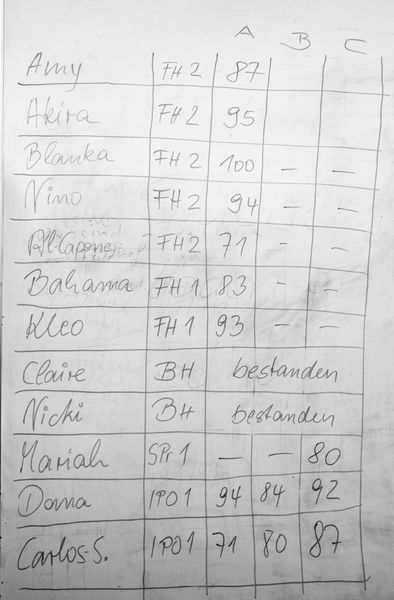 A B C
Amy FH 2 87
Akira FH 2 95
Blanka FH 2 100 – –
Nino FH 2 94 – –
Al-Capone FH2 71 – –
Bahama FH 1 83 – –
Kleo FH 1 93 – –
Claire BH bestanden
Nicki BH bestanden
Mariah SPr 1 – – 80
Dama IPO 1 94 84 92
Carlos-S. IPO1 71 80 87